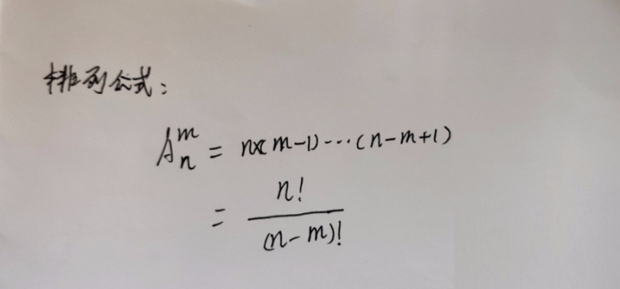 排列公式：
Aₙᵐ = n×(m-1)···(n-m+1)
= n! / (n-m)!